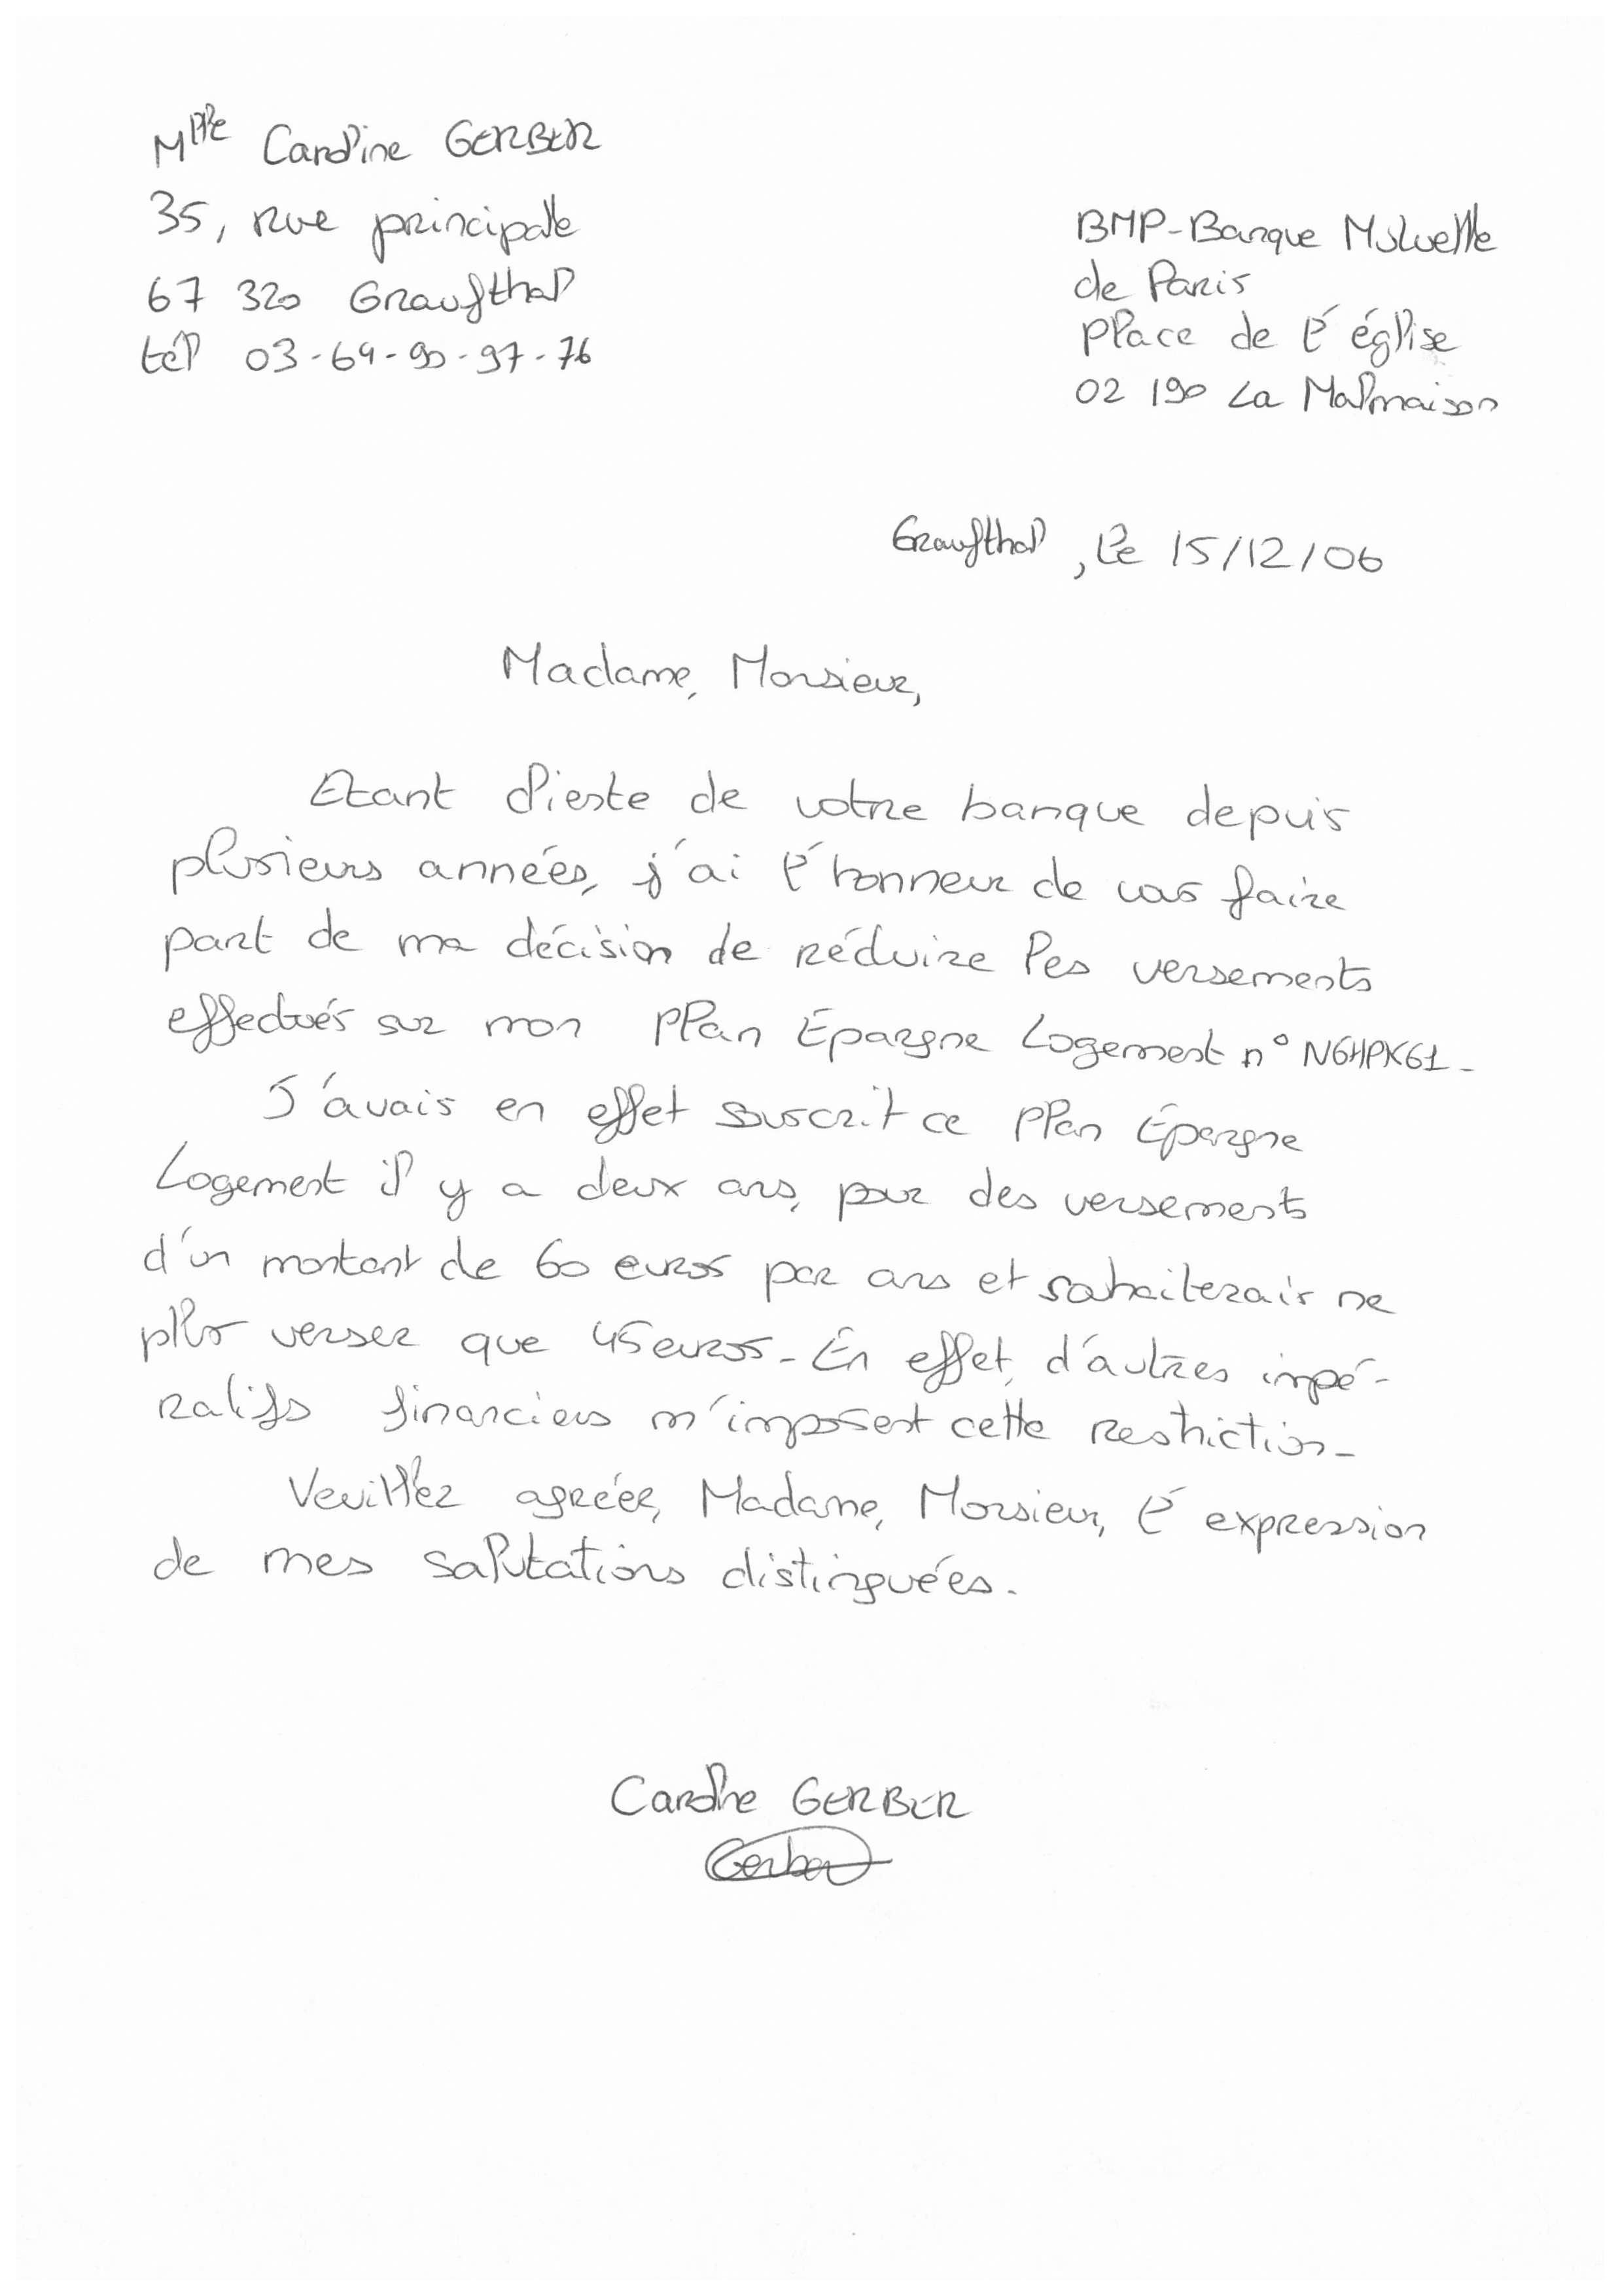 Mlle Caroline GERBER
35, rue principale
67 320 Graufthal
tél 03-69-90-97-76
BMP-Banque Mutuelle
de Paris
place de l'église
02 190 La Malmaison
Graufthal, le 15/12/06
Madame, Monsieur,
Etant cliente de votre banque depuis
plusieurs années, j'ai l'honneur de vous faire
part de ma décision de réduire les versements
effectués sur mon Plan Épargne Logement n° N6HPK61.
J'avais en effet souscrit ce Plan Épargne
Logement il y a deux ans, pour des versements
d'un montant de 60 euros par ans et souhaiterais ne
plus verser que 45 euros. En effet, d'autres impé-
ratifs financiers m'imposent cette restriction.
Veuillez agréer, Madame, Monsieur, l'expression
de mes salutations distinguées.
Caroline GERBER
Gerber